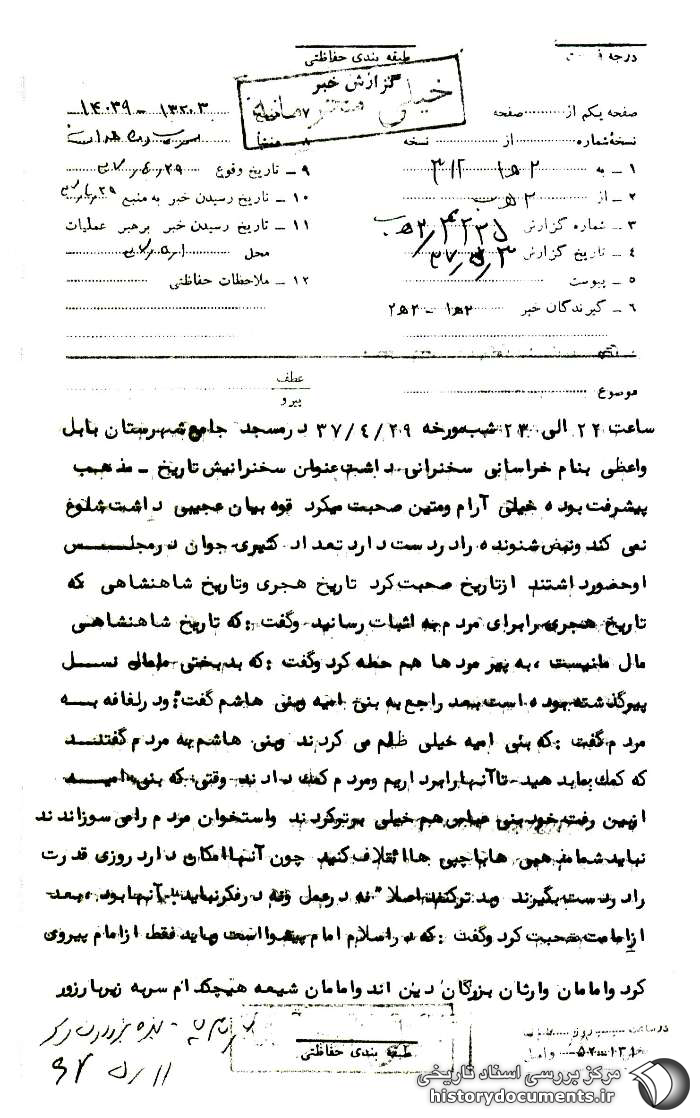 طبقه بندی حفاظتی
گزارش خبر
خیلی
صفحه یکم از صفحه
نسخه شماره از نسخه
۱ ـ به
۲ ـ از
۳ ـ شماره گزارش
۴ ـ تاریخ گزارش
۵ ـ پیوست
۶ ـ گیرندگان خبر
۹ ـ تاریخ وقوع
۱۰ ـ تاریخ رسیدن خبر به منبع
۱۱ ـ تاریخ رسیدن خبر برهبر عملیات
محل
۱۲ ـ ملاحظات حفاظتی
موضوع
عطف
پیرو
ساعت ۲۲ الی ۲۳ شب مورخه ۳۷/۴/۲۹ در مسجد جامع شهرستان بابل
واعظی بنام خراسانی سخنرانی داشت عنوان سخنرانیش تاریخ ـ مذهب
پیشرفت بوده خیلی آرام ومتین صحبت میکرد قوه بیان عجیبی داشت شلوغ
نمی کند ونبض شنونده را در دست دارد تعداد کثیری جوان در مجلس
او حضور داشتند از تاریخ صحبت کرد تاریخ هجری وتاریخ شاهنشاهی که
تاریخ هجری را برای مردم به اثبات رسانید وگفت : که تاریخ شاهنشاهی
مال ما نیست ، به پیر مردها هم حمله کرد وگفت : که بدبختی ما مال نسل
پیر گذشته بوده است بعد راجع به بنی امیه وبنی هاشم گفت : ودر لفافه به
مردم گفت : که بنی امیه خیلی ظلم می کردند وبنی هاشم به مردم گفتند
که کمک بما بدهید تا آنها را برداریم ومردم کمک دادند وقتی که بنی امیه
از بین رفت خود بنی عباس هم خیلی بدتر کردند واستخوان مردم را می سوزاندند
نباید شما مذهبی ها با چپی ها ائتلاف کنید چون آنها امکان دارد روزی قدرت
را در دست بگیرند وبدتر کنند اصلا" نه در عمل ونه در فکر نباید با آنها بود ، بعد
از امامت صحبت کرد وگفت : که در اسلام امام پیشوا است وباید فقط از امام پیروی
کرد وامامان وارثان بزرگان دین اند وامامان شیعه هیچکدام سر به زیر بار زور
طبقه بندی حفاظتی
مرکز بررسی اسناد تاریخی
historydocuments.ir